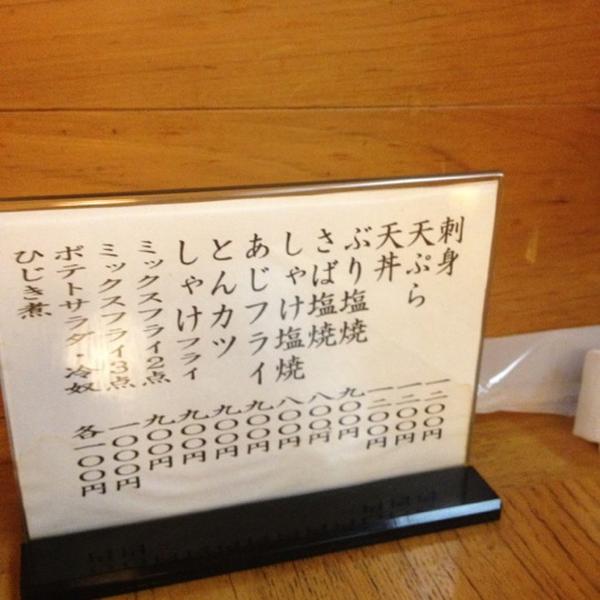 刺身 一二〇〇円
天ぷら 一二〇〇円
天丼 一二〇〇円
ぶり塩焼 九〇〇円
さば塩焼 八〇〇円
しゃけ塩焼 八〇〇円
あじフライ 九〇〇円
とんカツ 九〇〇円
しゃけフライ 九〇〇円
ミックスフライ2点 九〇〇円
ミックスフライ3点 一〇〇〇円
ポテトサラダ・冷奴 各一〇〇円
ひじき煮